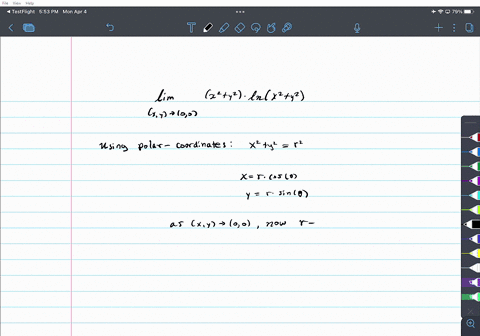 File View Help
TestFlight 5:53 PM Mon Apr 4 79%
lim (x²+y²)·ln(x²+y²)
(x,y)→(0,0)
Using polar-coordinates: x²+y² = r²
x = r·cos(θ)
y = r·sin(θ)
as (x,y)→(0,0), now r–